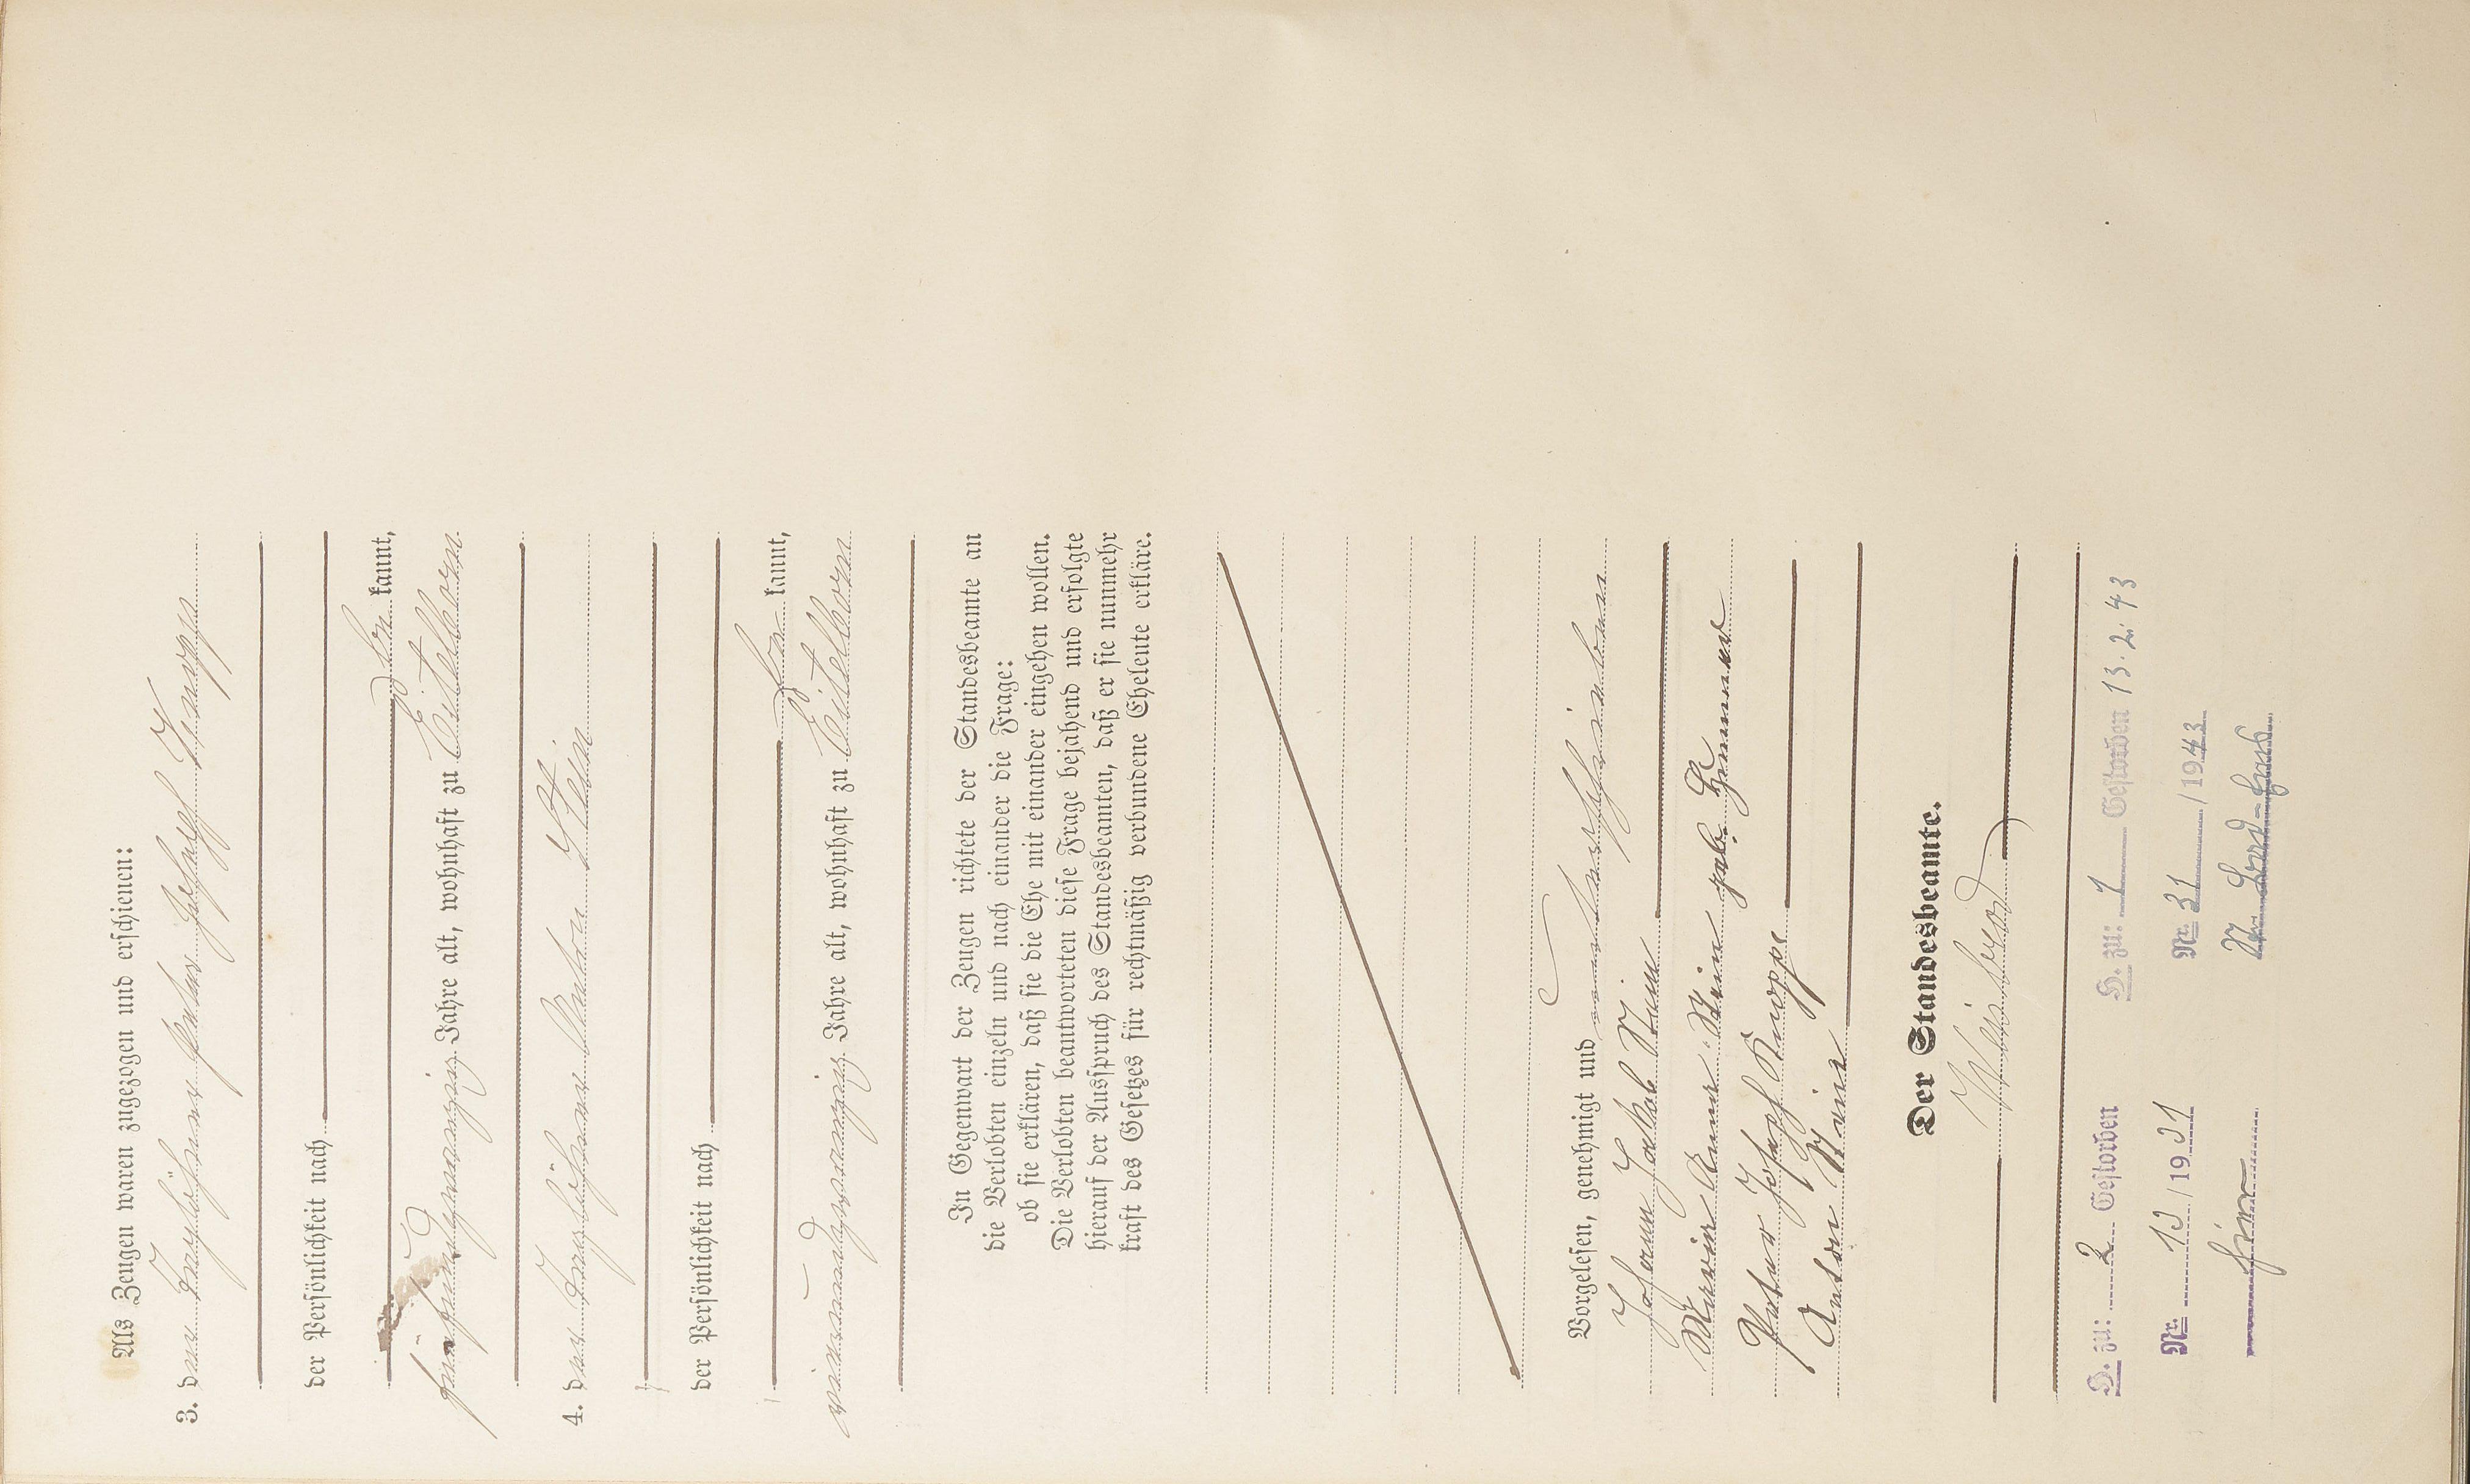 Als Zeugen waren zugezogen und erschienen:
3. der Tagelöhner Peter Joseph Knopp
der Persönlichkeit nach
be kannt,
fünfundzwanzig Jahre alt, wohnhaft zu Eitelborn
4. der Tagelöhner Anton Stein
der Persönlichkeit nach
be kannt,
einundzwanzig Jahre alt, wohnhaft zu Eitelborn
In Gegenwart der Zeugen richtete der Standesbeamte an
die Verlobten einzeln und nach einander die Frage:
ob sie erklären, daß sie die Ehe mit einander eingehen wollen.
Die Verlobten beantworteten diese Frage bejahend und erfolgte
hierauf der Ausspruch des Standesbeamten, daß er sie nunmehr
kraft des Gesetzes für rechtmäßig verbundene Eheleute erkläre.
Vorgelesen, genehmigt und unterschrieben
Johann Jakob Stein
Maria Anna Stein geb.
Peter Josef Knopp
Anton Stein
Der Standesbeamte.
Weisbrod
H. zu: 2 Gestorben H. zu: 1 Gestorben 13.2.43
Nr. /1931 Nr. 31/1943
hier